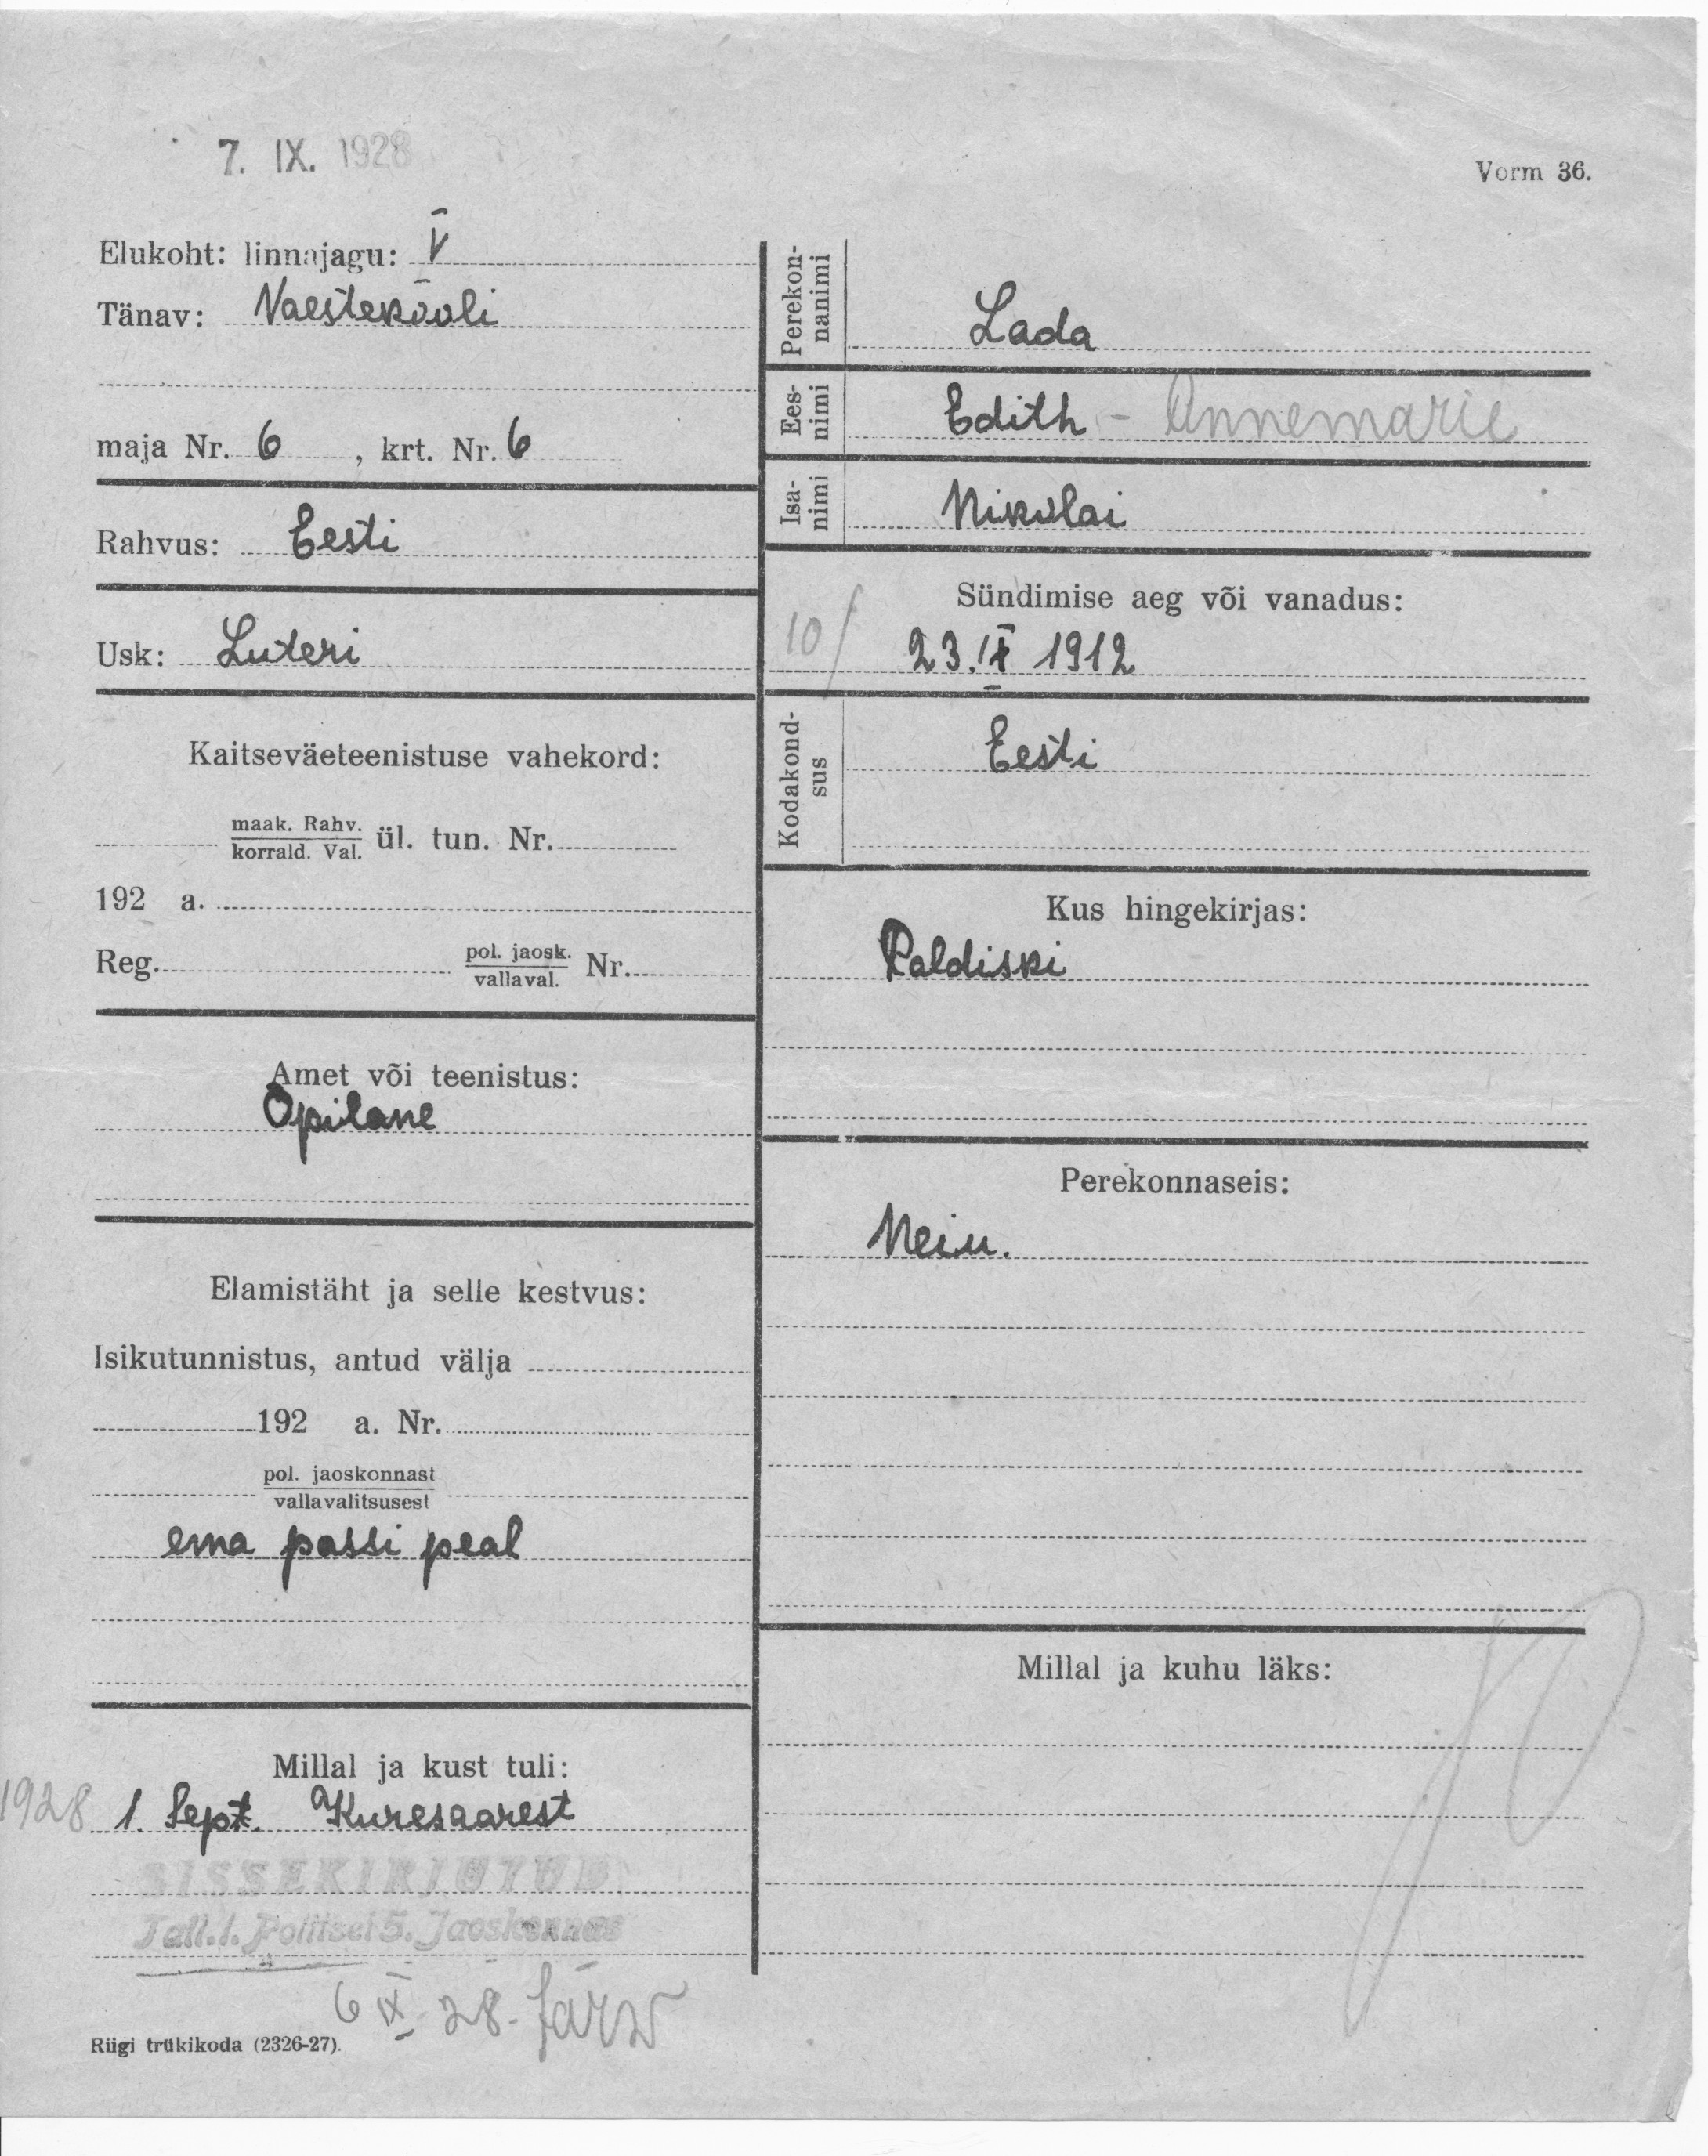 7. IX. 1928
Vorm 36.
Elukoht: linnajagu: V
Tänav: Vaestekooli
maja Nr. 6 , krt. Nr. 6
Rahvus: Eesti
Usk: Luteri
Kaitseväeteenistuse vahekord:
maak. Rahv.
korrald. Val.
ül. tun. Nr.
192 a.
Reg. pol. jaosk.
vallaval.
Nr.
Amet või teenistus:
Õpilane
Elamistäht ja selle kestvus:
Isikutunnistus, antud välja
192 a. Nr.
pol. jaoskonnast
vallavalitsusest
ema passi peal
Millal ja kust tuli:
1928 1. Sept. Kuresaarest
SISSEKIRJUTUD
Tall.l. Politsei 5. Jaoskonnas
6 IX 28. Järw
Riigi trükikoda (2326-27).
Perekon-
nanimi
Lada
Ees-
nimi
Edith - Annemarie
Isa-
nimi
Nikolai
Sündimise aeg või vanadus:
10/ 23. IX 1912
Kodakond-
sus
Eesti
Kus hingekirjas:
Paldiski
Perekonnaseis:
Neiu.
Millal ja kuhu läks: